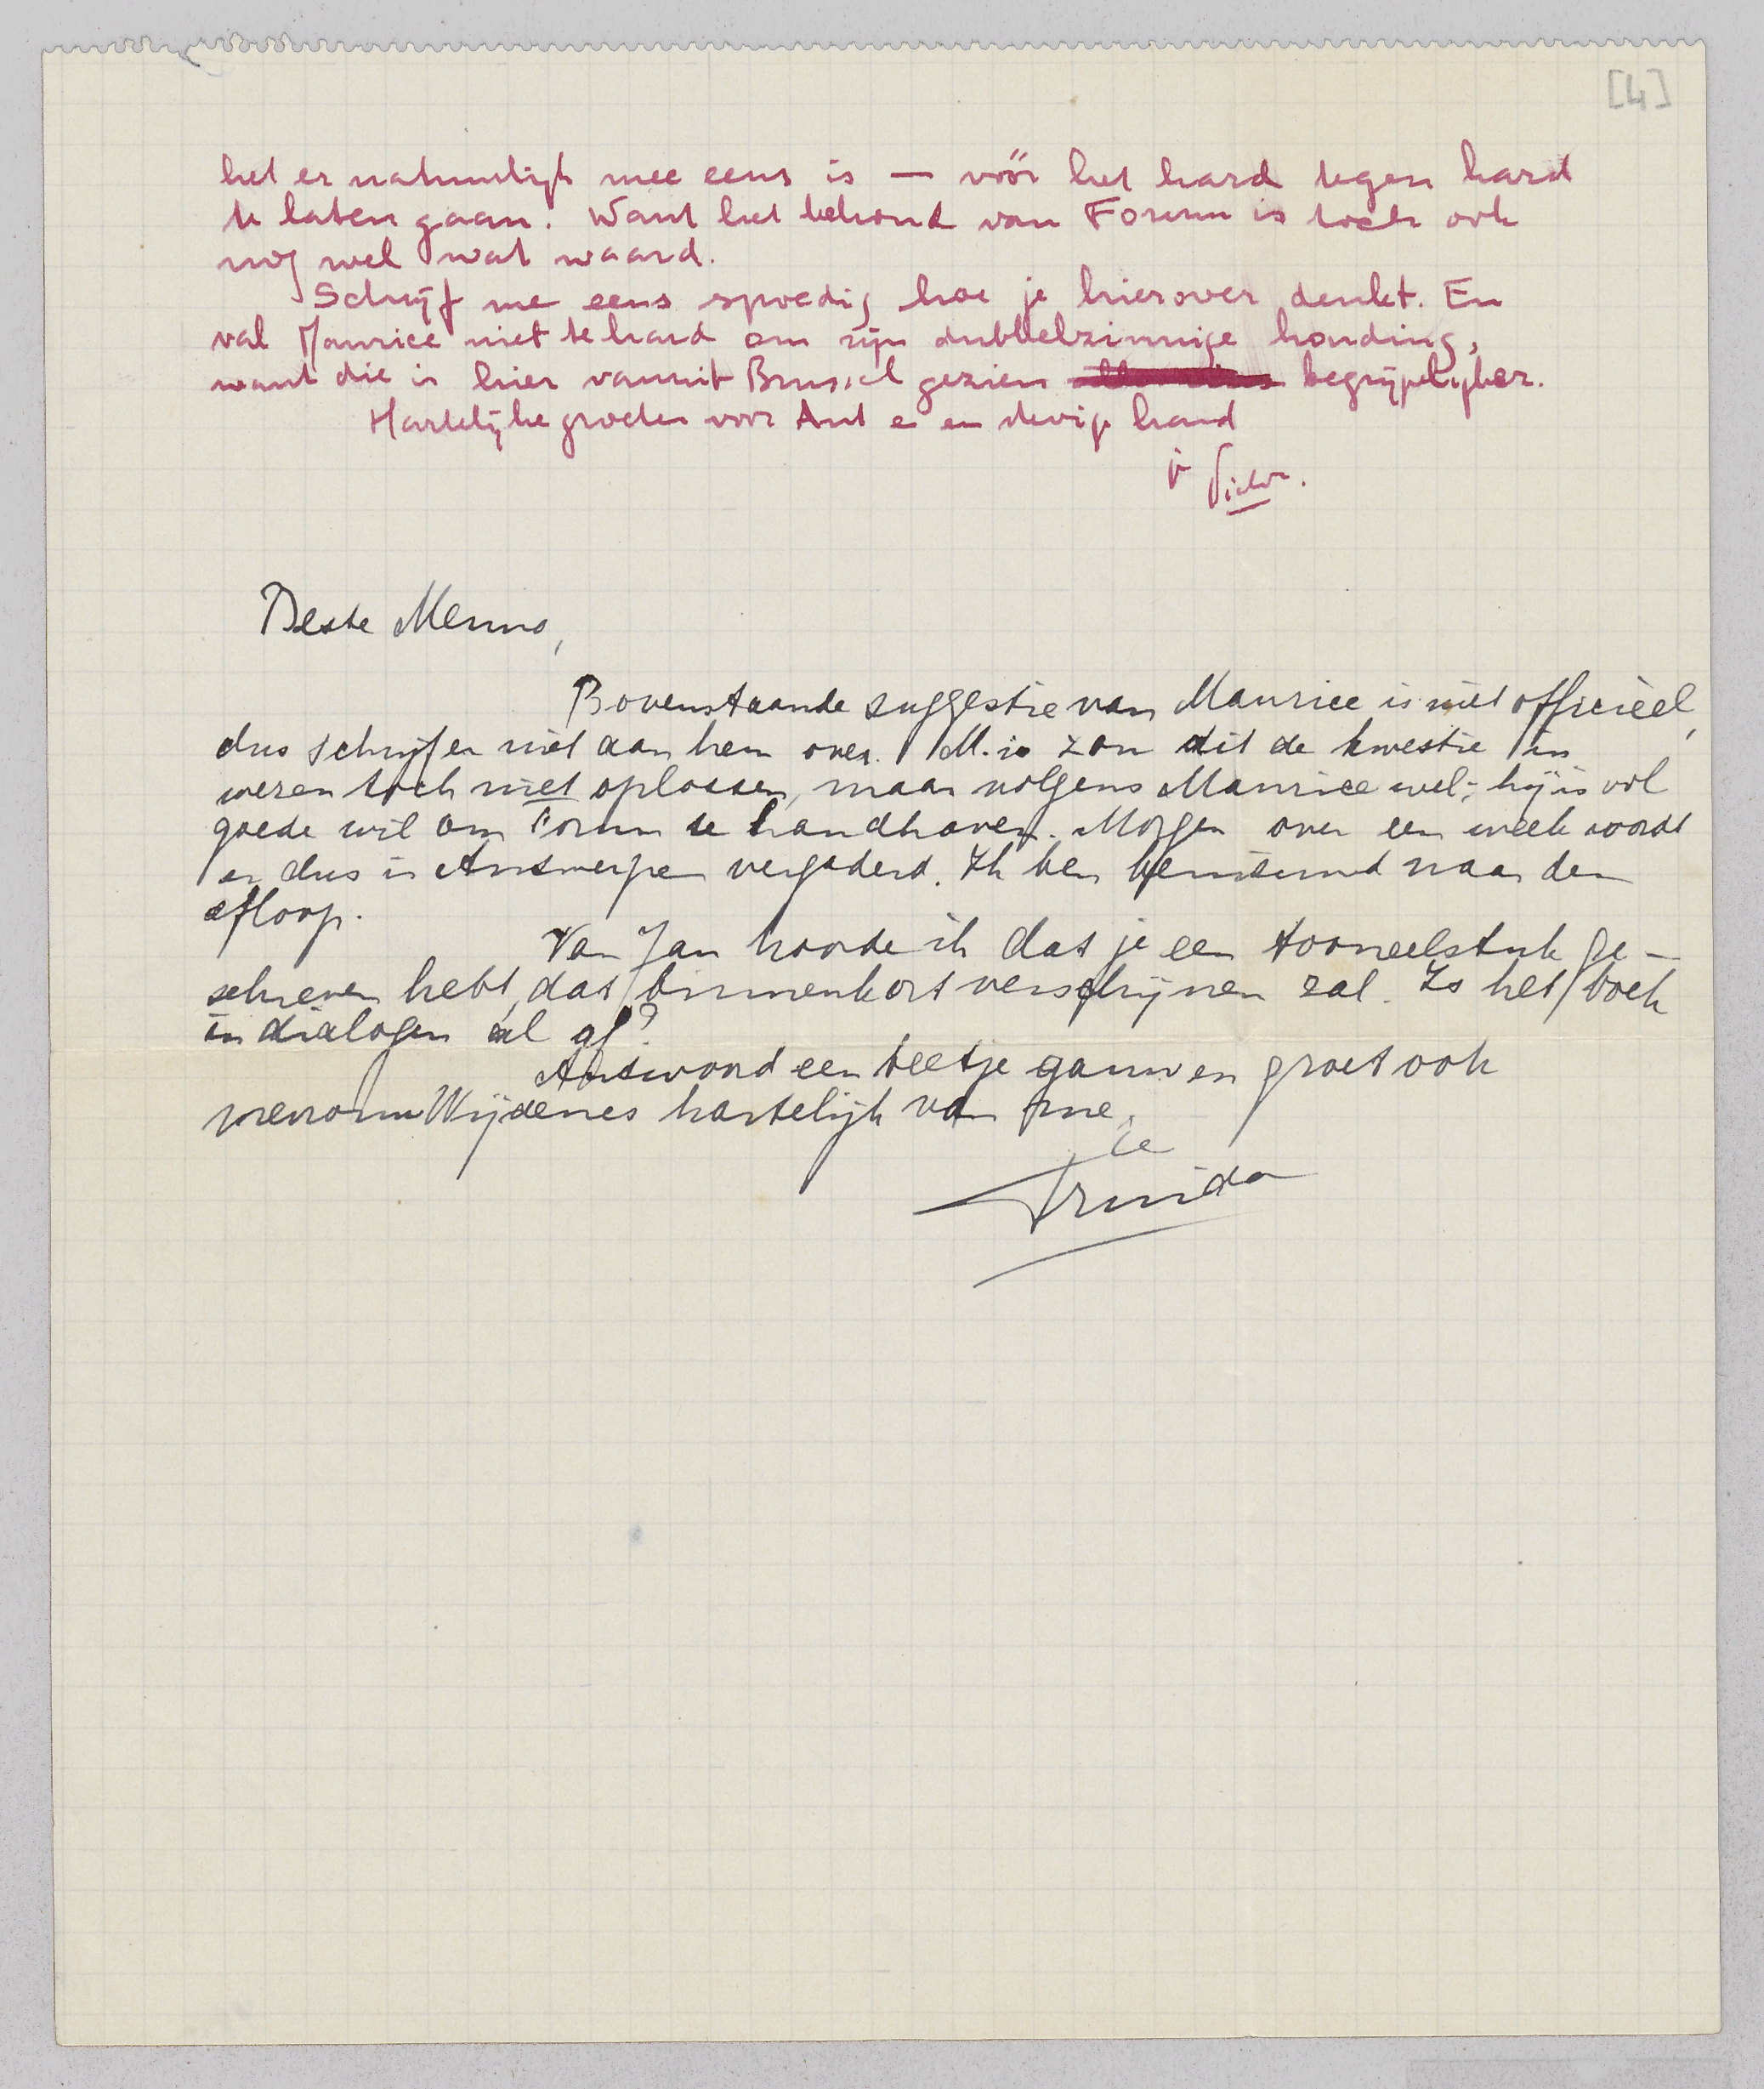 [4]
het er natuurlijk mee eens is — vóór het hard tegen hard
te laten gaan. Want het behoud van Forum is toch ook
nog wel wat waard.
Schrijf me eens spoedig hoe je hierover denkt. En
val Maurice niet te hard om zijn dubbelzinnige houding,
want die is hier vanuit Brussel gezien begrijpelijker.
Hartelijke groeten voor Ant e en stevige hand
v
Beste Menno,
Bovenstaande suggestie van Maurice is niet officieel,
dus schrijf er niet aan hem over. M.i. zou dit de kwestie in
wezen toch niet oplossen, maar volgens Maurice wel; hij is vol
goede wil om Forum te handhaven. Morgen over een week wordt
er dus in Antwerpen vergaderd. Ik ben benieuwd naar den
afloop.
Van Jan hoorde ik dat je een tooneelstuk ge-
schreven hebt, dat binnenkort verschijnen zal. Is het boek
in dialogen al af?
Antwoord een beetje gauw en groet ook
mevrouw Wijdenes hartelijk van me.
je
Truida